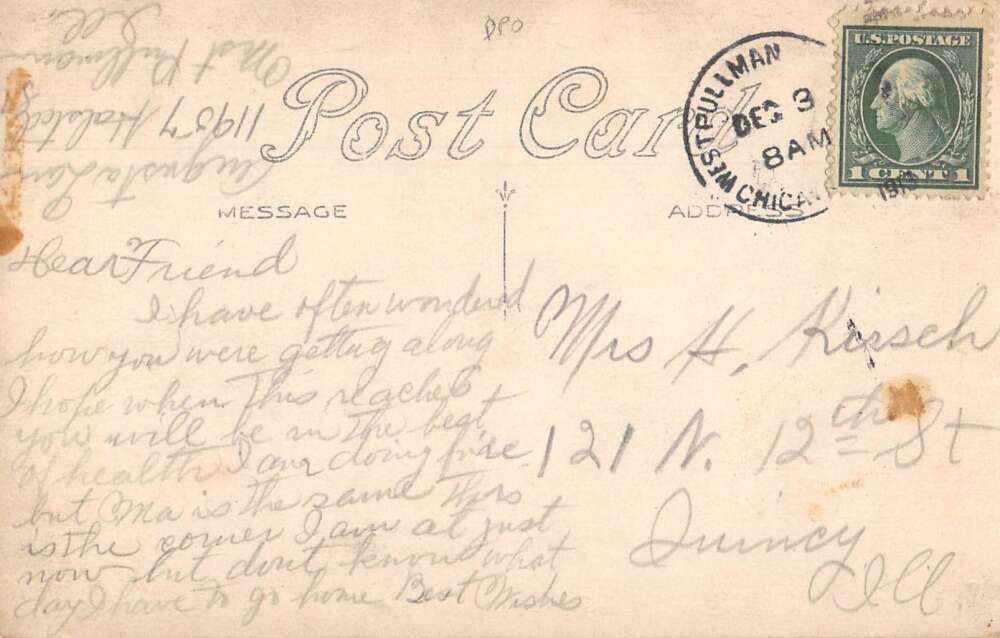 DPO
Post Card
WEST PULLMAN
DEC 3
8 AM
CHICA
U.S. POSTAGE
1 CENT 1
MESSAGE
ADDRESS
Dear Friend
I have often wondered
how you were getting along
I hope when This reaches
you will be in the best
of health I am doing fine
but Ma is the same This
is the corner I am at just
now but dont know what
day I have to go home Best Wishes
Mrs H. Kirsch
121 N. 12th St
Quincy
Ill.
Augusta
11957 Halsted
West Pullman
Ill.